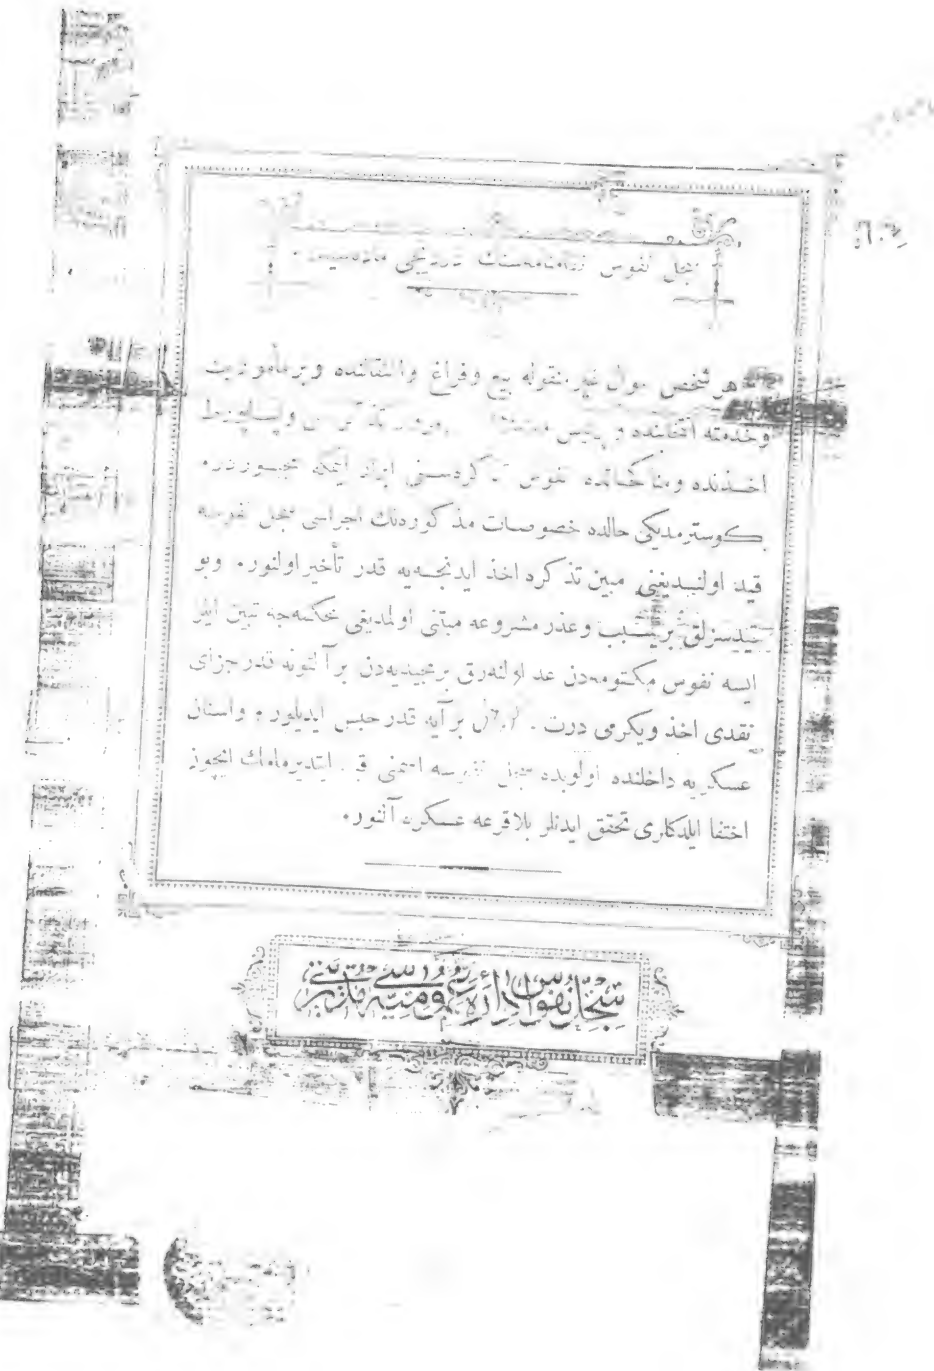 سجل نفوس نظامنامه‌سنك دردنجی ماده‌سیدر.
هر شخص اموال غیر منقوله بیع وفراغ وانتقالنده وبر مأموریت
وخدمته انتخابنده و پولیس تذکره‌سی وپساپورط
اخذنده ومناكحاتده نفوس تذکره‌سنی ابراز ایتمكه مجبوردر.
كوسترمدیكی حالده خصوصات مذكوره‌نك اجراسی سجل نفوسه
قید اولندیغنی مبین تذکره اخذ ایدنجه‌یه قدر تأخیر اولنور. وبو
قیدسزلق بر سبب وعذر مشروعه مبتنی اولمدیغی محكمه‌جه تبین ایلر
ایسه نفوس مكتومه‌دن عد اولنه‌رق بر مجیدیه‌دن بر آلتونه قدر جزای
نقدی اخذ ویكرمی درت بر آیه قدر حبس ایدیلور. واسنان
عسكریه داخلنده اولوبده سجل نفوسه اسمنی قید ایتدیرمامك ایچون
اختفا ایلدكاری تحقق ایدنلر بلا قرعه عسكره آلنور.
سجل نفوس اداره عمومیه‌سی مدیریتی